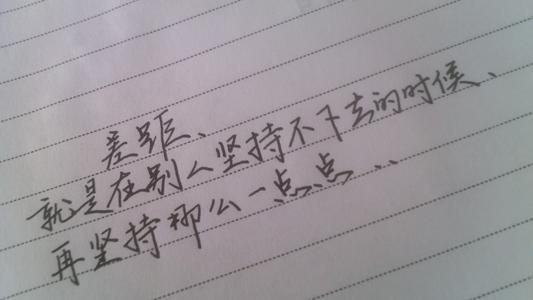 差距、
就是在别人坚持不下去的时候、
再坚持那么一点点...